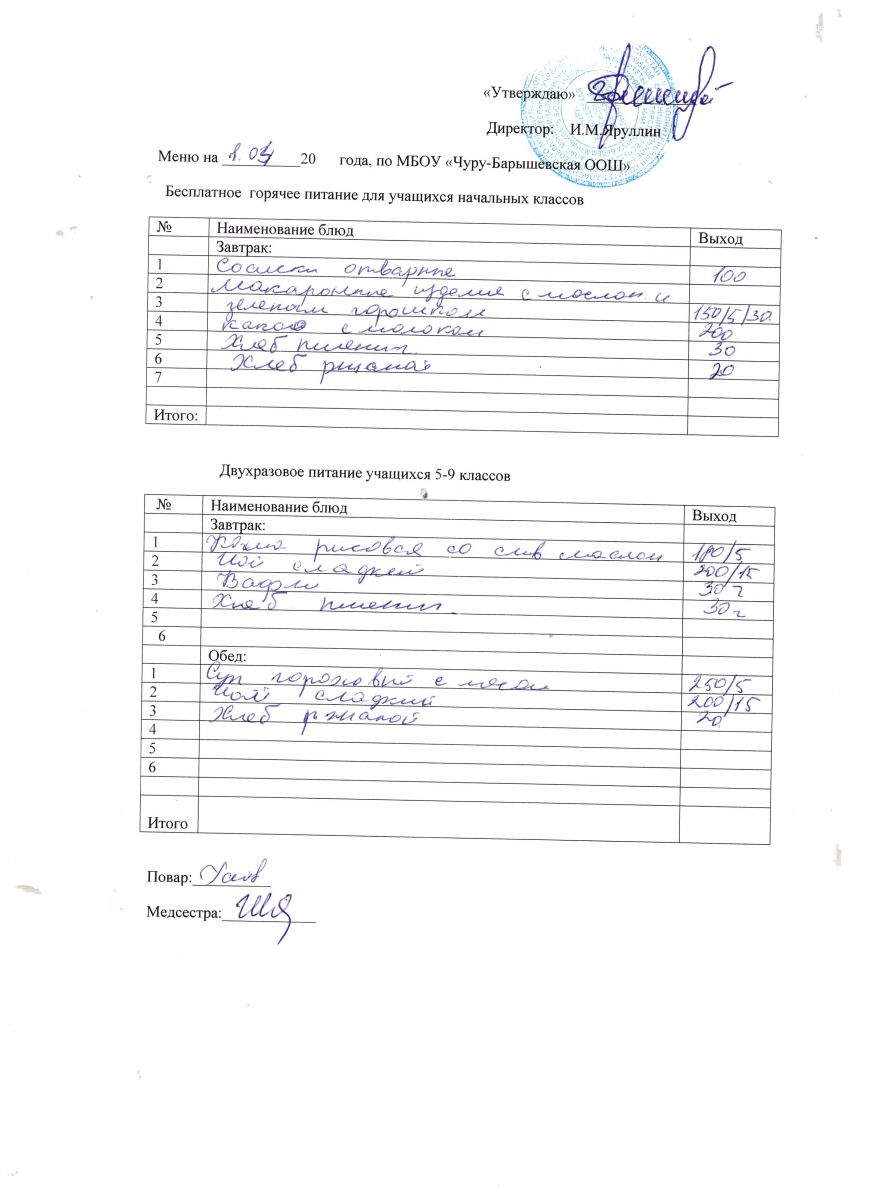 «Утверждаю»
Директор: И.М.Яруллин
Меню на 20 года, по МБОУ «Чуру-Барышевская ООШ»
Бесплатное горячее питание для учащихся начальных классов
№ Наименование блюд Выход
Завтрак:
1 Сосиски отварные 100
2 Макаронные изделия с маслом и
3 зеленым горошком 150/5/30
4 какао с молоком 200
5 Хлеб пшенич. 30
6 Хлеб ржаной 20
7
Итого:
Двухразовое питание учащихся 5-9 классов
№ Наименование блюд Выход
Завтрак:
1 Каша рисовая со слив маслом 180/5
2 Чай сладкий 200/15
3 Вафли 30 г
4 Хлеб пшенич. 30 г
5
6
Обед:
1 Суп гороховый с мясом 250/5
2 Чай сладкий 200/15
3 Хлеб ржаной 20
4
5
6
Итого
Повар:
Медсестра: